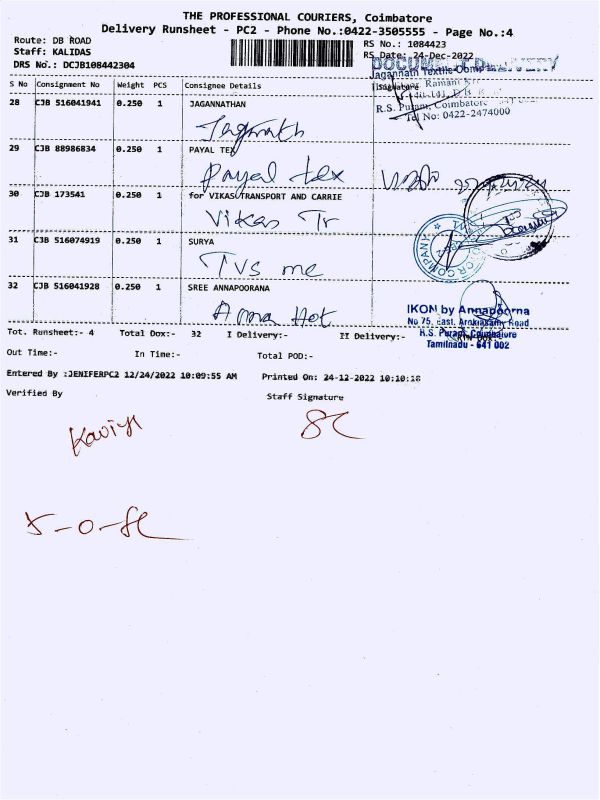 THE PROFESSIONAL COURIERS, Coimbatore
Delivery Runsheet - PC2 - Phone No.:0422-3505555 - Page No.:4
Route: DB ROAD
RS No.: 1084423
Staff: KALIDAS
RS Date: 24-Dec-2022
DRS No.: DCJB108442304
Jagannath Textile Company
R.S. Puram, Coimbatore
Tel No: 0422-2474000
S No Consignment No Weight PCS Consignee Details Signature
28 CJB 516041941 0.250 1 JAGANNATHAN
Jagnnath
29 CJB 88986834 0.250 1 PAYAL TEX
Payal tex
30 CJB 173541 0.250 1 for VIKAS TRANSPORT AND CARRIE
Vikas Tr
31 CJB 516074919 0.250 1 SURYA
TVS me
COMPANY
32 CJB 516041928 0.250 1 SREE ANNAPOORANA
Anna Hot
IKON by Annapoorna
No 75, East. Arokiasamy Road
R.S. Puram, Coimbatore
Tamilnadu - 641 002
Tot. Runsheet:- 4 Total Dox:- 32 I Delivery:- II Delivery:-
Out Time:- In Time:- Total POD:-
Entered By :JENIFERPC2 12/24/2022 10:09:55 AM Printed On: 24-12-2022 10:10:18
Verified By Staff Signature
Kaviya